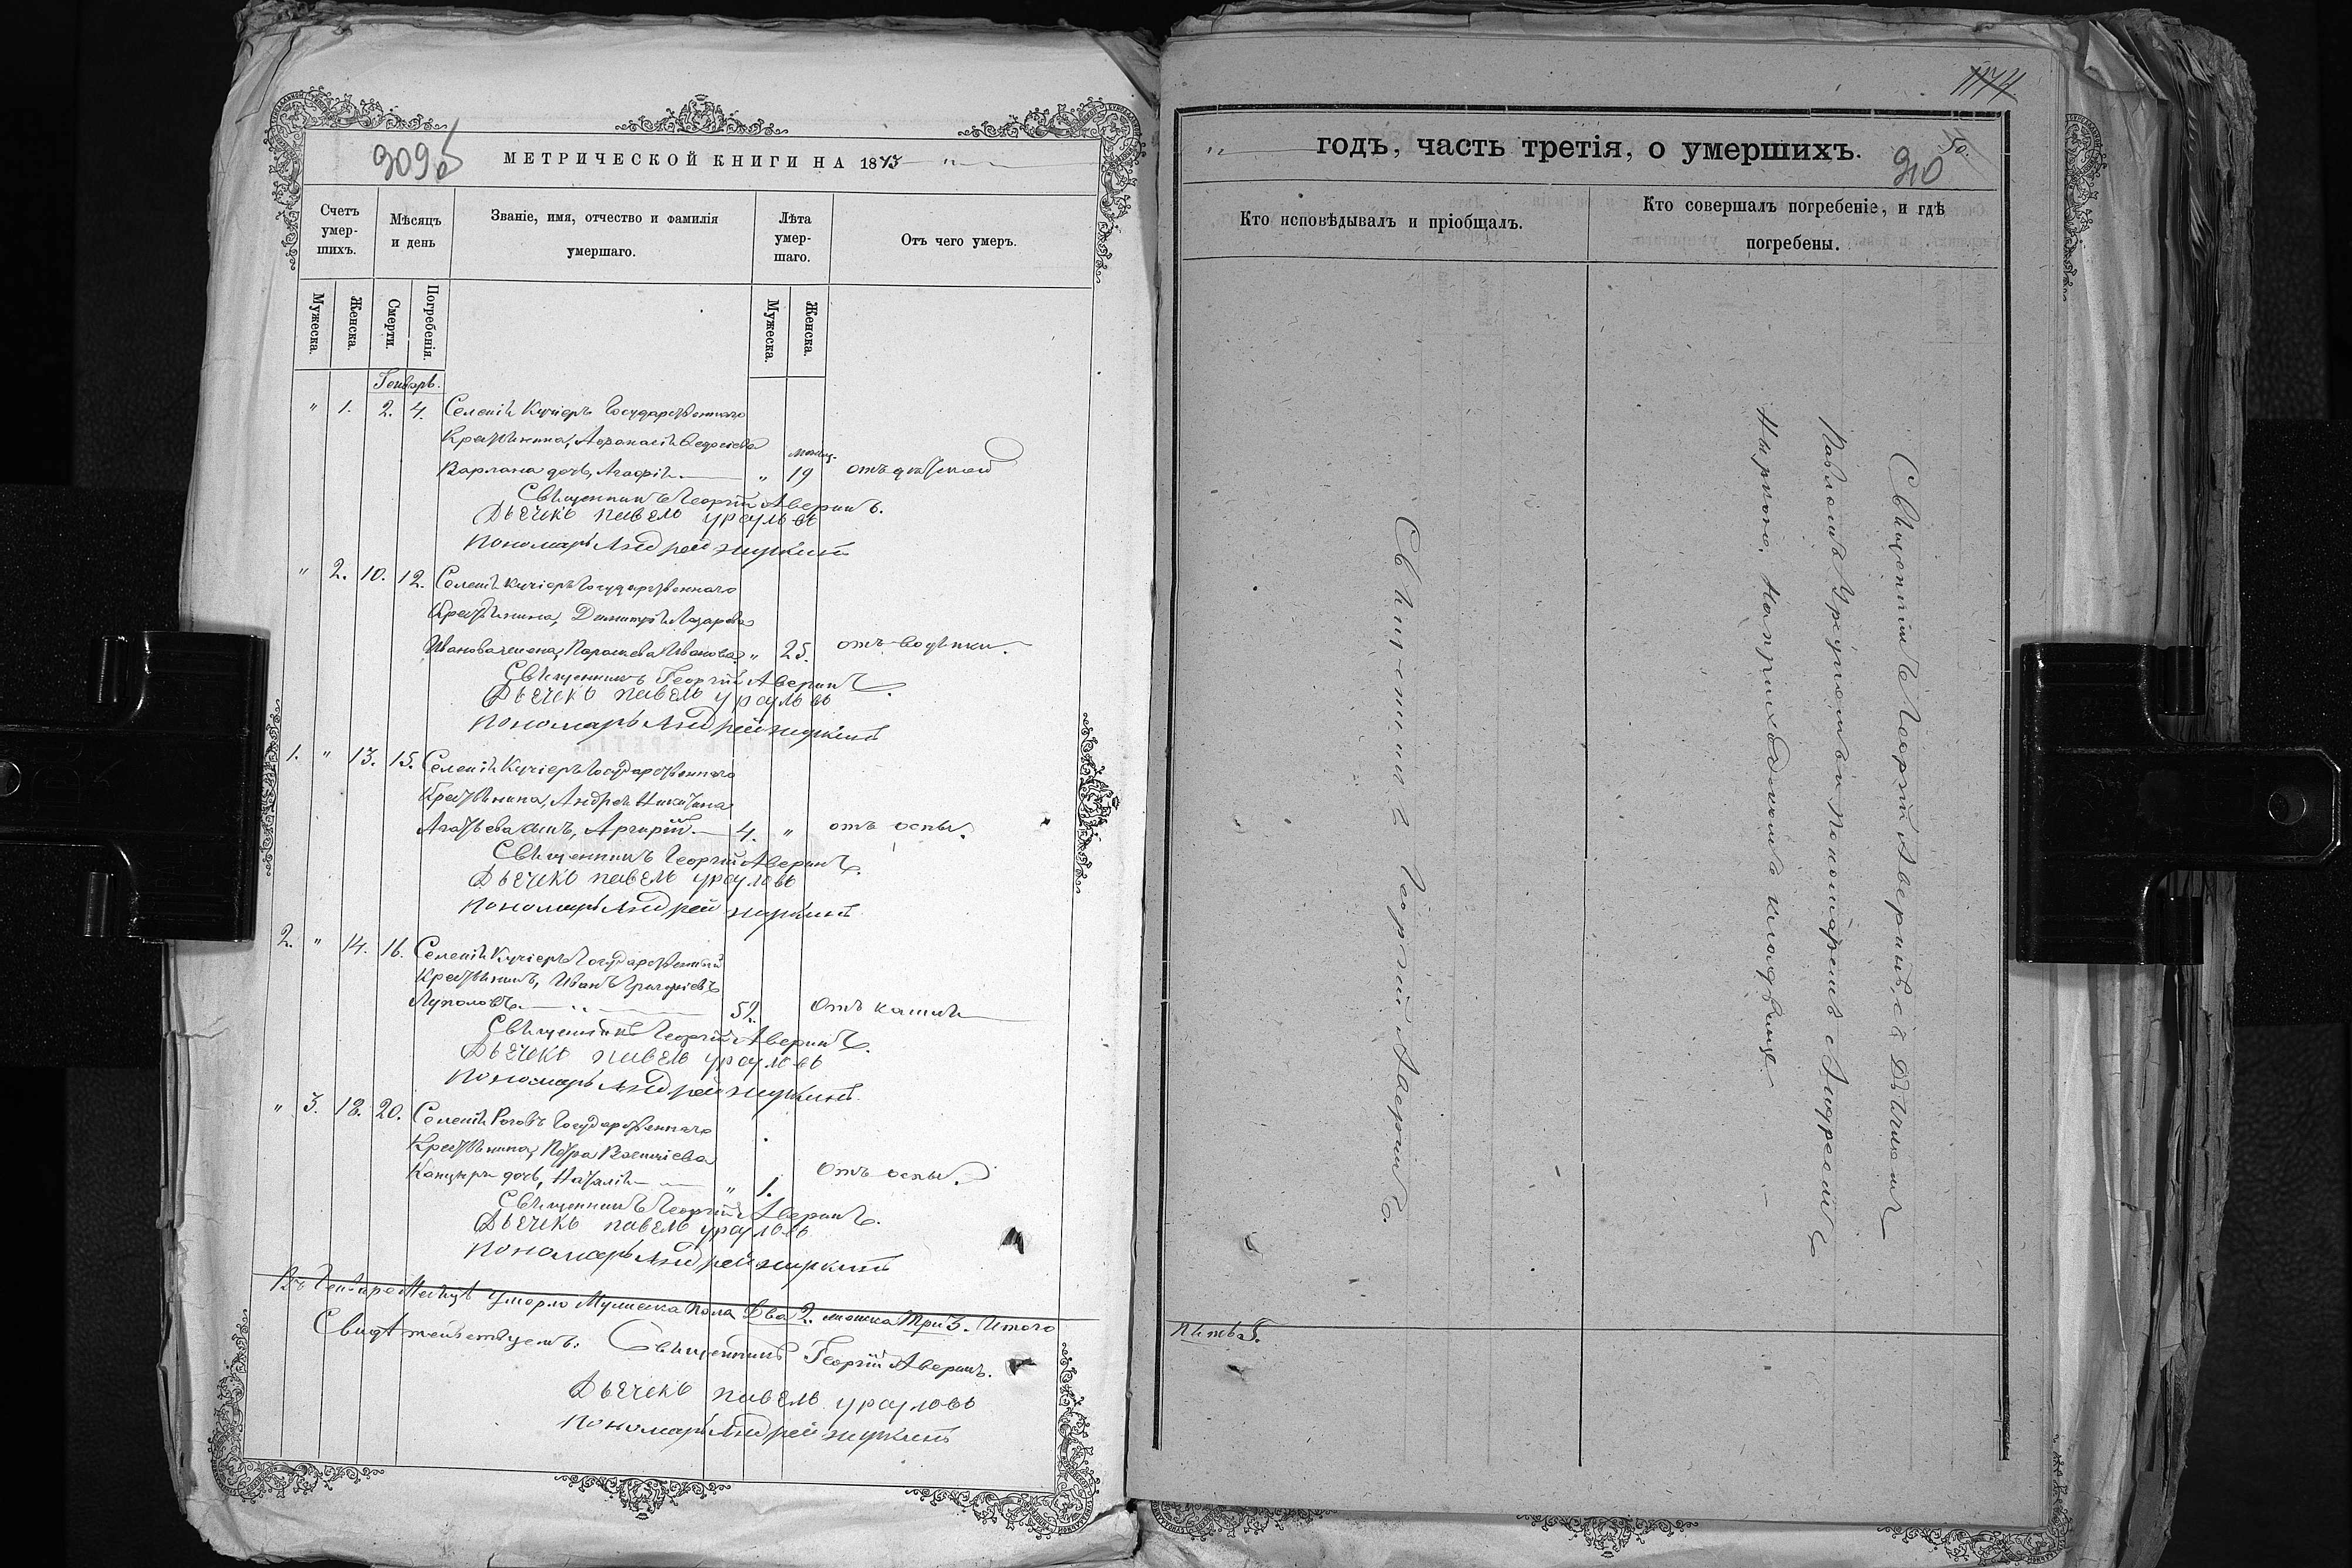 909б
МЕТРИЧЕСКОЙ КНИГИ НА 1873
Счетъ умер-шихъ.
Мѣсяцъ и день
Званіе, имя, отчество и фамилія умершаго.
Лѣта умер-шаго.
Отъ чего умеръ.
Мужеска.
Женска.
Смерти.
Погребенія.
Мужеска.
Женска.
Генварь.
" 1. 2. 4. Селенія Кучіеръ Государственнаго
Крестьянина, Афанасія
Варлана дочь, Агафія " 19 отъ
Священникъ Георгій Аверинъ.
Дьячекъ павелъ
пономарь Андрей
" 2. 10. 12. Селенія Кучіеръ Государственнаго
Крестьянина, Димитрія Лазарева
Иванова жена, Параскева Иванова " 25. отъ водянки.
Священникъ Георгій Аверинъ.
Дьячекъ павелъ
пономарь Андрей
1. " 13. 15. Селенія Кучіеръ Государственнаго
Крестьянина, Андрея Никитина
сынъ, Аргирій 4. " отъ оспы.
Священникъ Георгій Аверинъ.
Дьячекъ павелъ
пономарь Андрей
2. " 14. 16. Селенія Кучіеръ Государственный
Крестьянинъ, Иванъ Григоріевъ
52. Отъ кашля
Священникъ Георгій Аверинъ.
Дьячекъ павелъ
пономарь Андрей
" 3. 18. 20. Селенія Государственнаго
Крестьянина, Петра Василіева
дочь, Наталія " 1. Отъ оспы.
Священникъ Георгій Аверинъ.
Дьячекъ павелъ
пономарь Андрей
Въ Генваре Месяцѣ Умерло Мужеска пола Два 2. женска Три 3. Итого
Свидѣтельствуемъ: Священникъ Георгій Аверинъ.
Дьячекъ павелъ
пономарь Андрей
1174
годъ, часть третія, о умершихъ.
910
50.
Кто исповѣдывалъ и пріобщалъ.
Кто совершалъ погребеніе, и гдѣ погребены.
Священникъ Георгій Аверинъ.
Священникъ Георгій Аверинъ, съ Дьячкомъ
Павломъ и Пономаремъ Андреемъ
На приходскомъ кладбище
Пять 5.